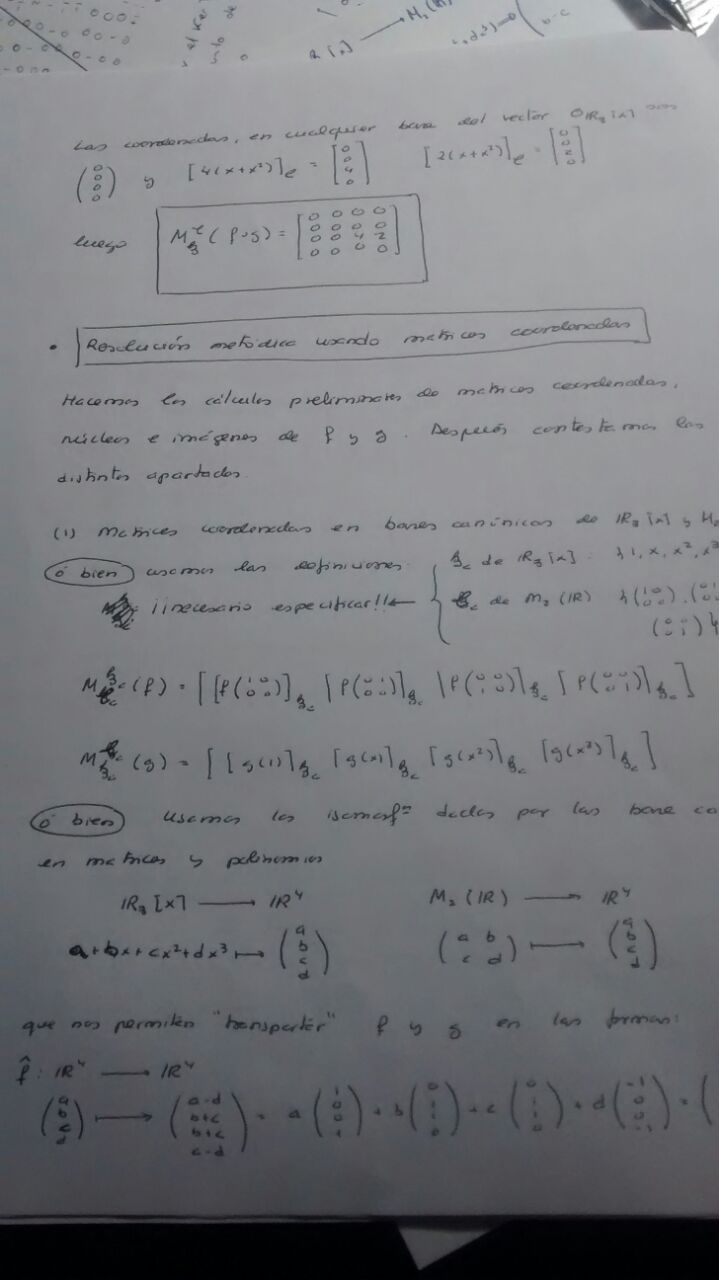 M₂(ℝ)
Las coordenadas, en cualquier base del vector 0ℝ₃[x] son
(0 0 0 0) y [4(x+x²)]e = [0 0 4 0] [2(x+x²)]e = [0 0 2 0]
luego M (f∘g) = [0 0 0 0 / 0 0 0 0 / 0 0 4 2 / 0 0 0 0]
• Resolución metódica usando matrices coordenadas
Hacemos los cálculos preliminares de matrices coordenadas,
núcleos e imágenes de f y g. Después contestamos los
distintos apartados.
(1) Matrices coordenadas en bases canónicas de ℝ₃[x] y M₂
ó bien usamos las definiciones. { Bc de ℝ₃[x]: {1, x, x², x³
¡¡necesario especificar!! ← { Bc de M₂(ℝ) {(1 0 / 0 0), (0 1 / 0 0)
(0 0 / 0 1)}
M (f) = [[f(1 0 / 0 0)]Bc [f(0 1 / 0 0)]Bc [f(0 0 / 1 0)]Bc [f(0 0 / 0 1)]Bc]
M (g) = [[g(1)]Bc [g(x)]Bc [g(x²)]Bc [g(x³)]Bc]
ó bien usamos los isomorfos dados por las base ca
en matrices y polinomios
ℝ₃[x] ⟶ ℝ⁴ M₂(ℝ) ⟶ ℝ⁴
a+bx+cx²+dx³ ⟼ (a b c d) (a b / c d) ⟼ (a b c d)
que nos permiten "transportar" f y g en las formas:
f̂: ℝ⁴ ⟶ ℝ⁴
(a b c d) ⟼ (a-d b+c b+c a-d) = a(1 0 0 1) + b(0 1 1 0) + c(0 1 1 0) + d(-1 0 0 -1) = (